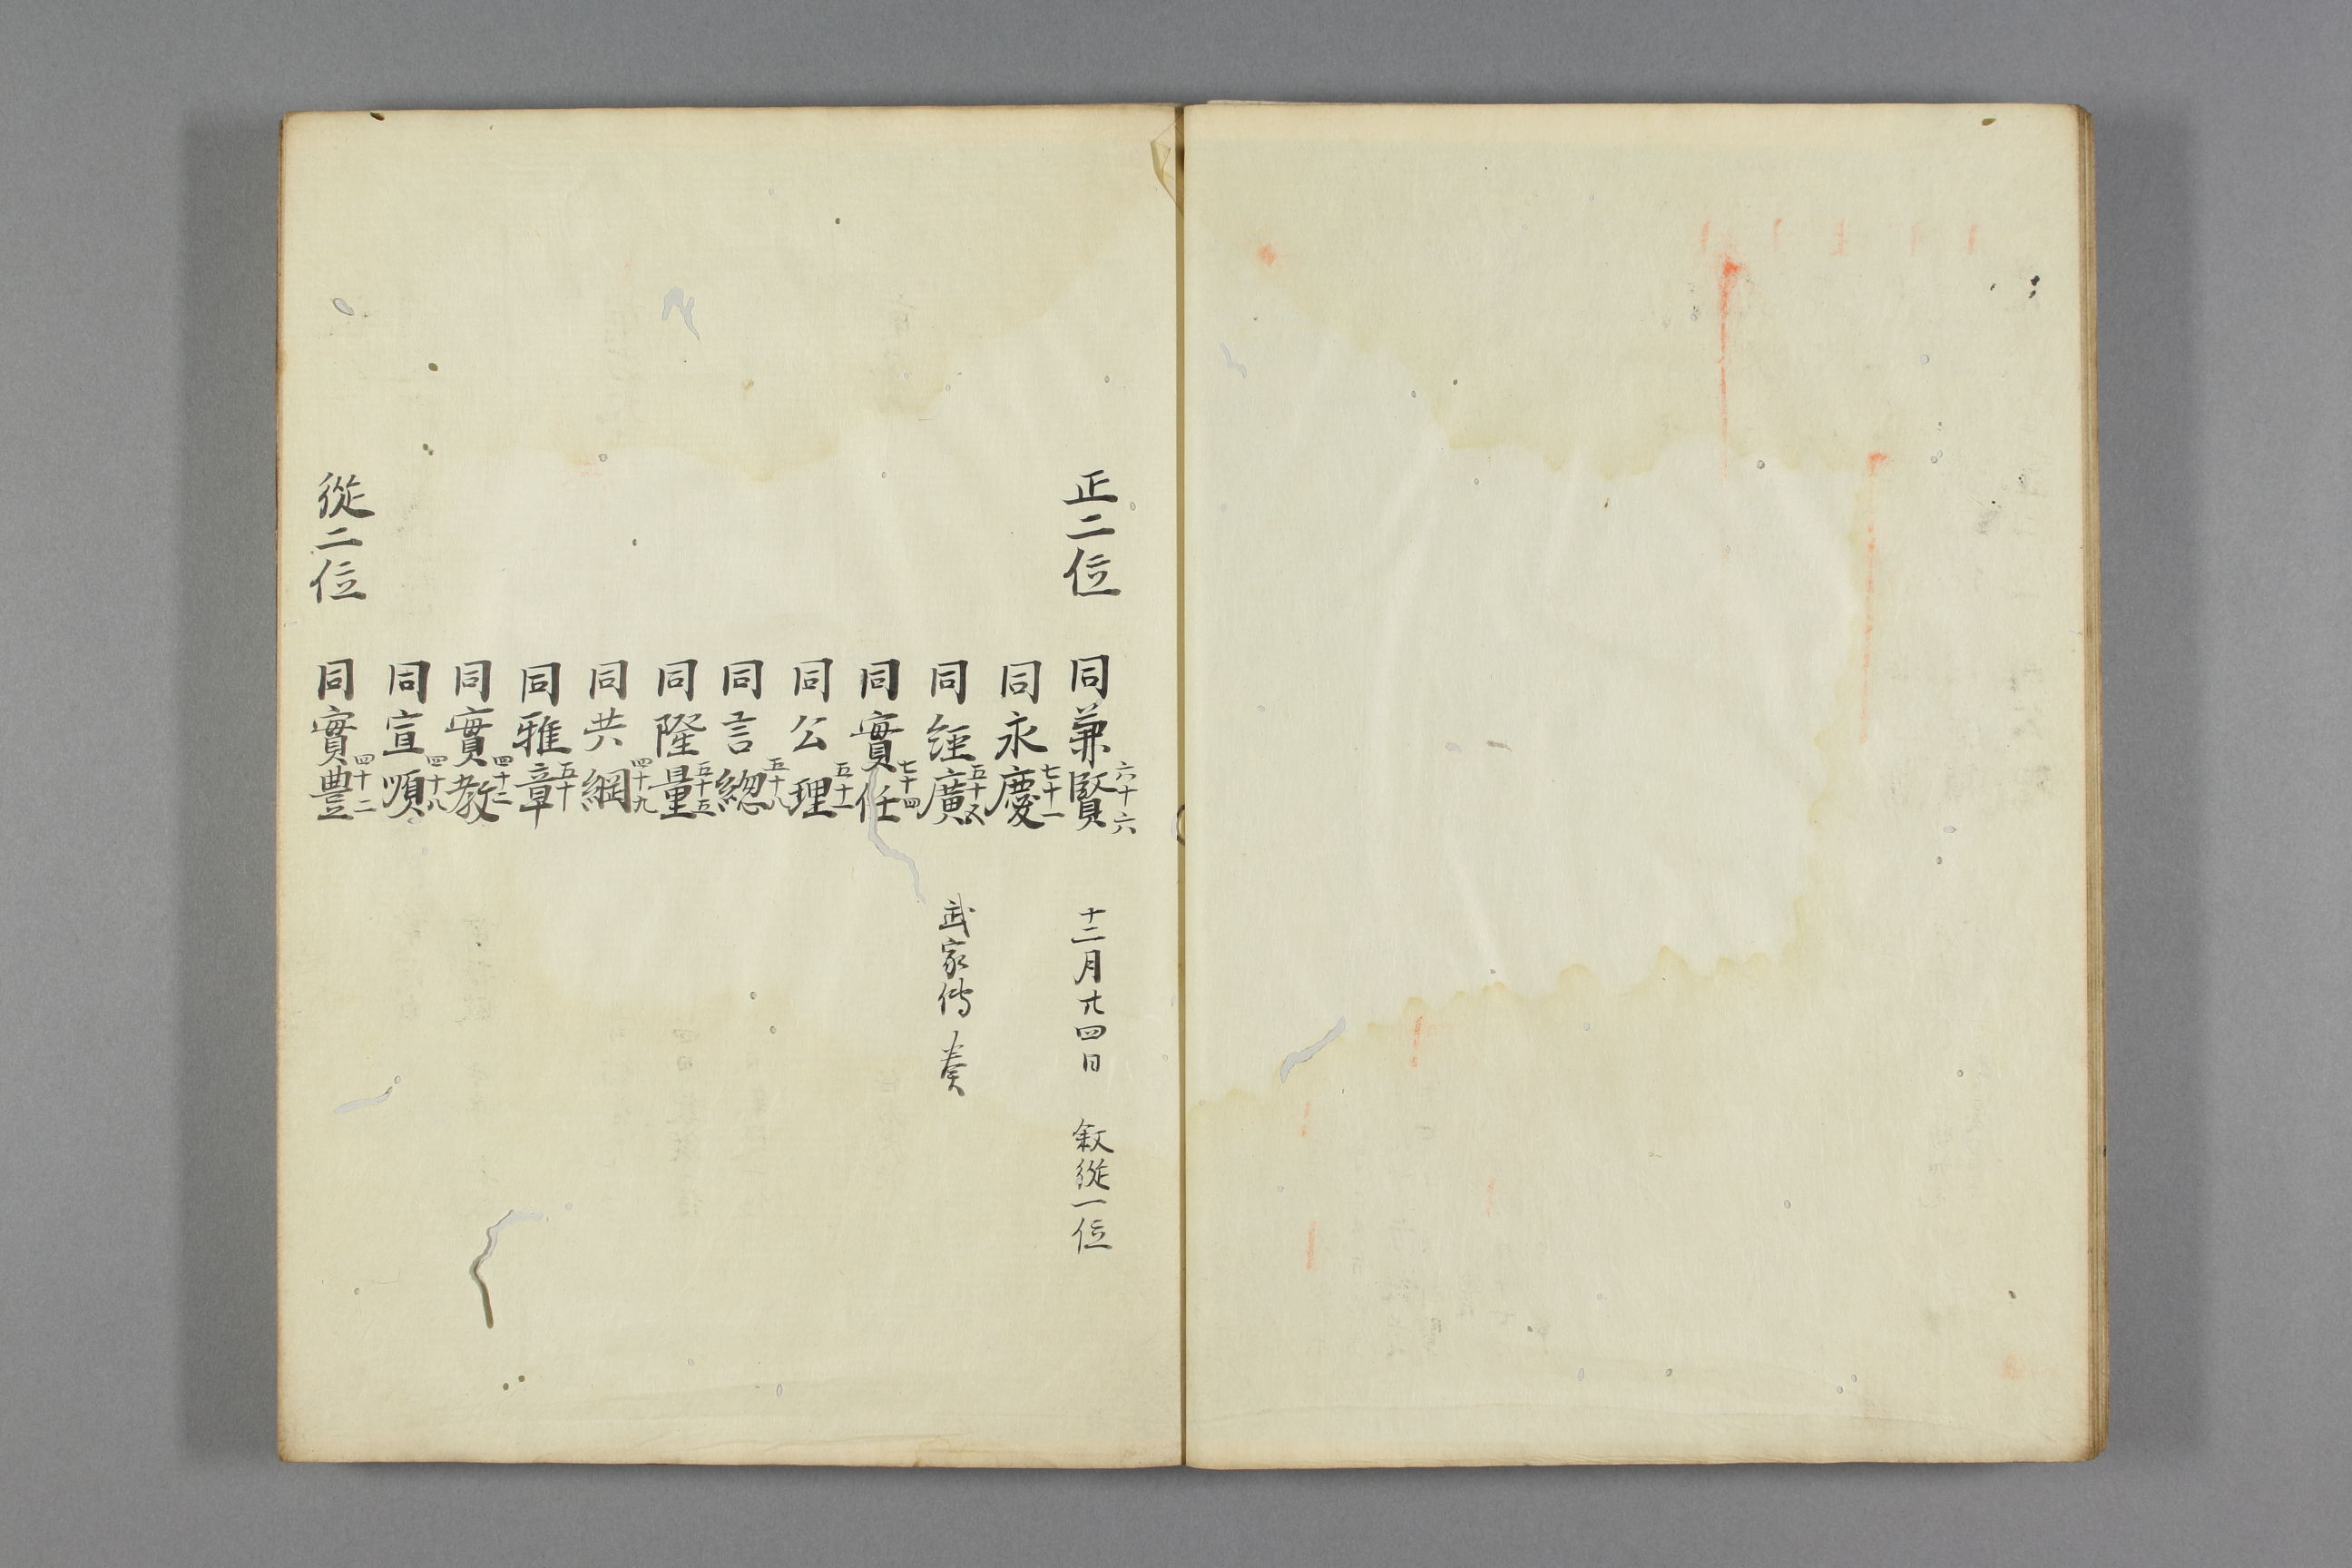 正二位 同兼賢 六十六 十二月廿四日 敘從一位
同永慶 七十一
同經廣 五十五 武家傳奏
同實任 七十四
同公理 五十一
同言總 五十八
同隆量 五十五
同共綱 四十九
同雅章 五十
同實教 四十二
同宣順 四十八
從二位 同實豊 四十二